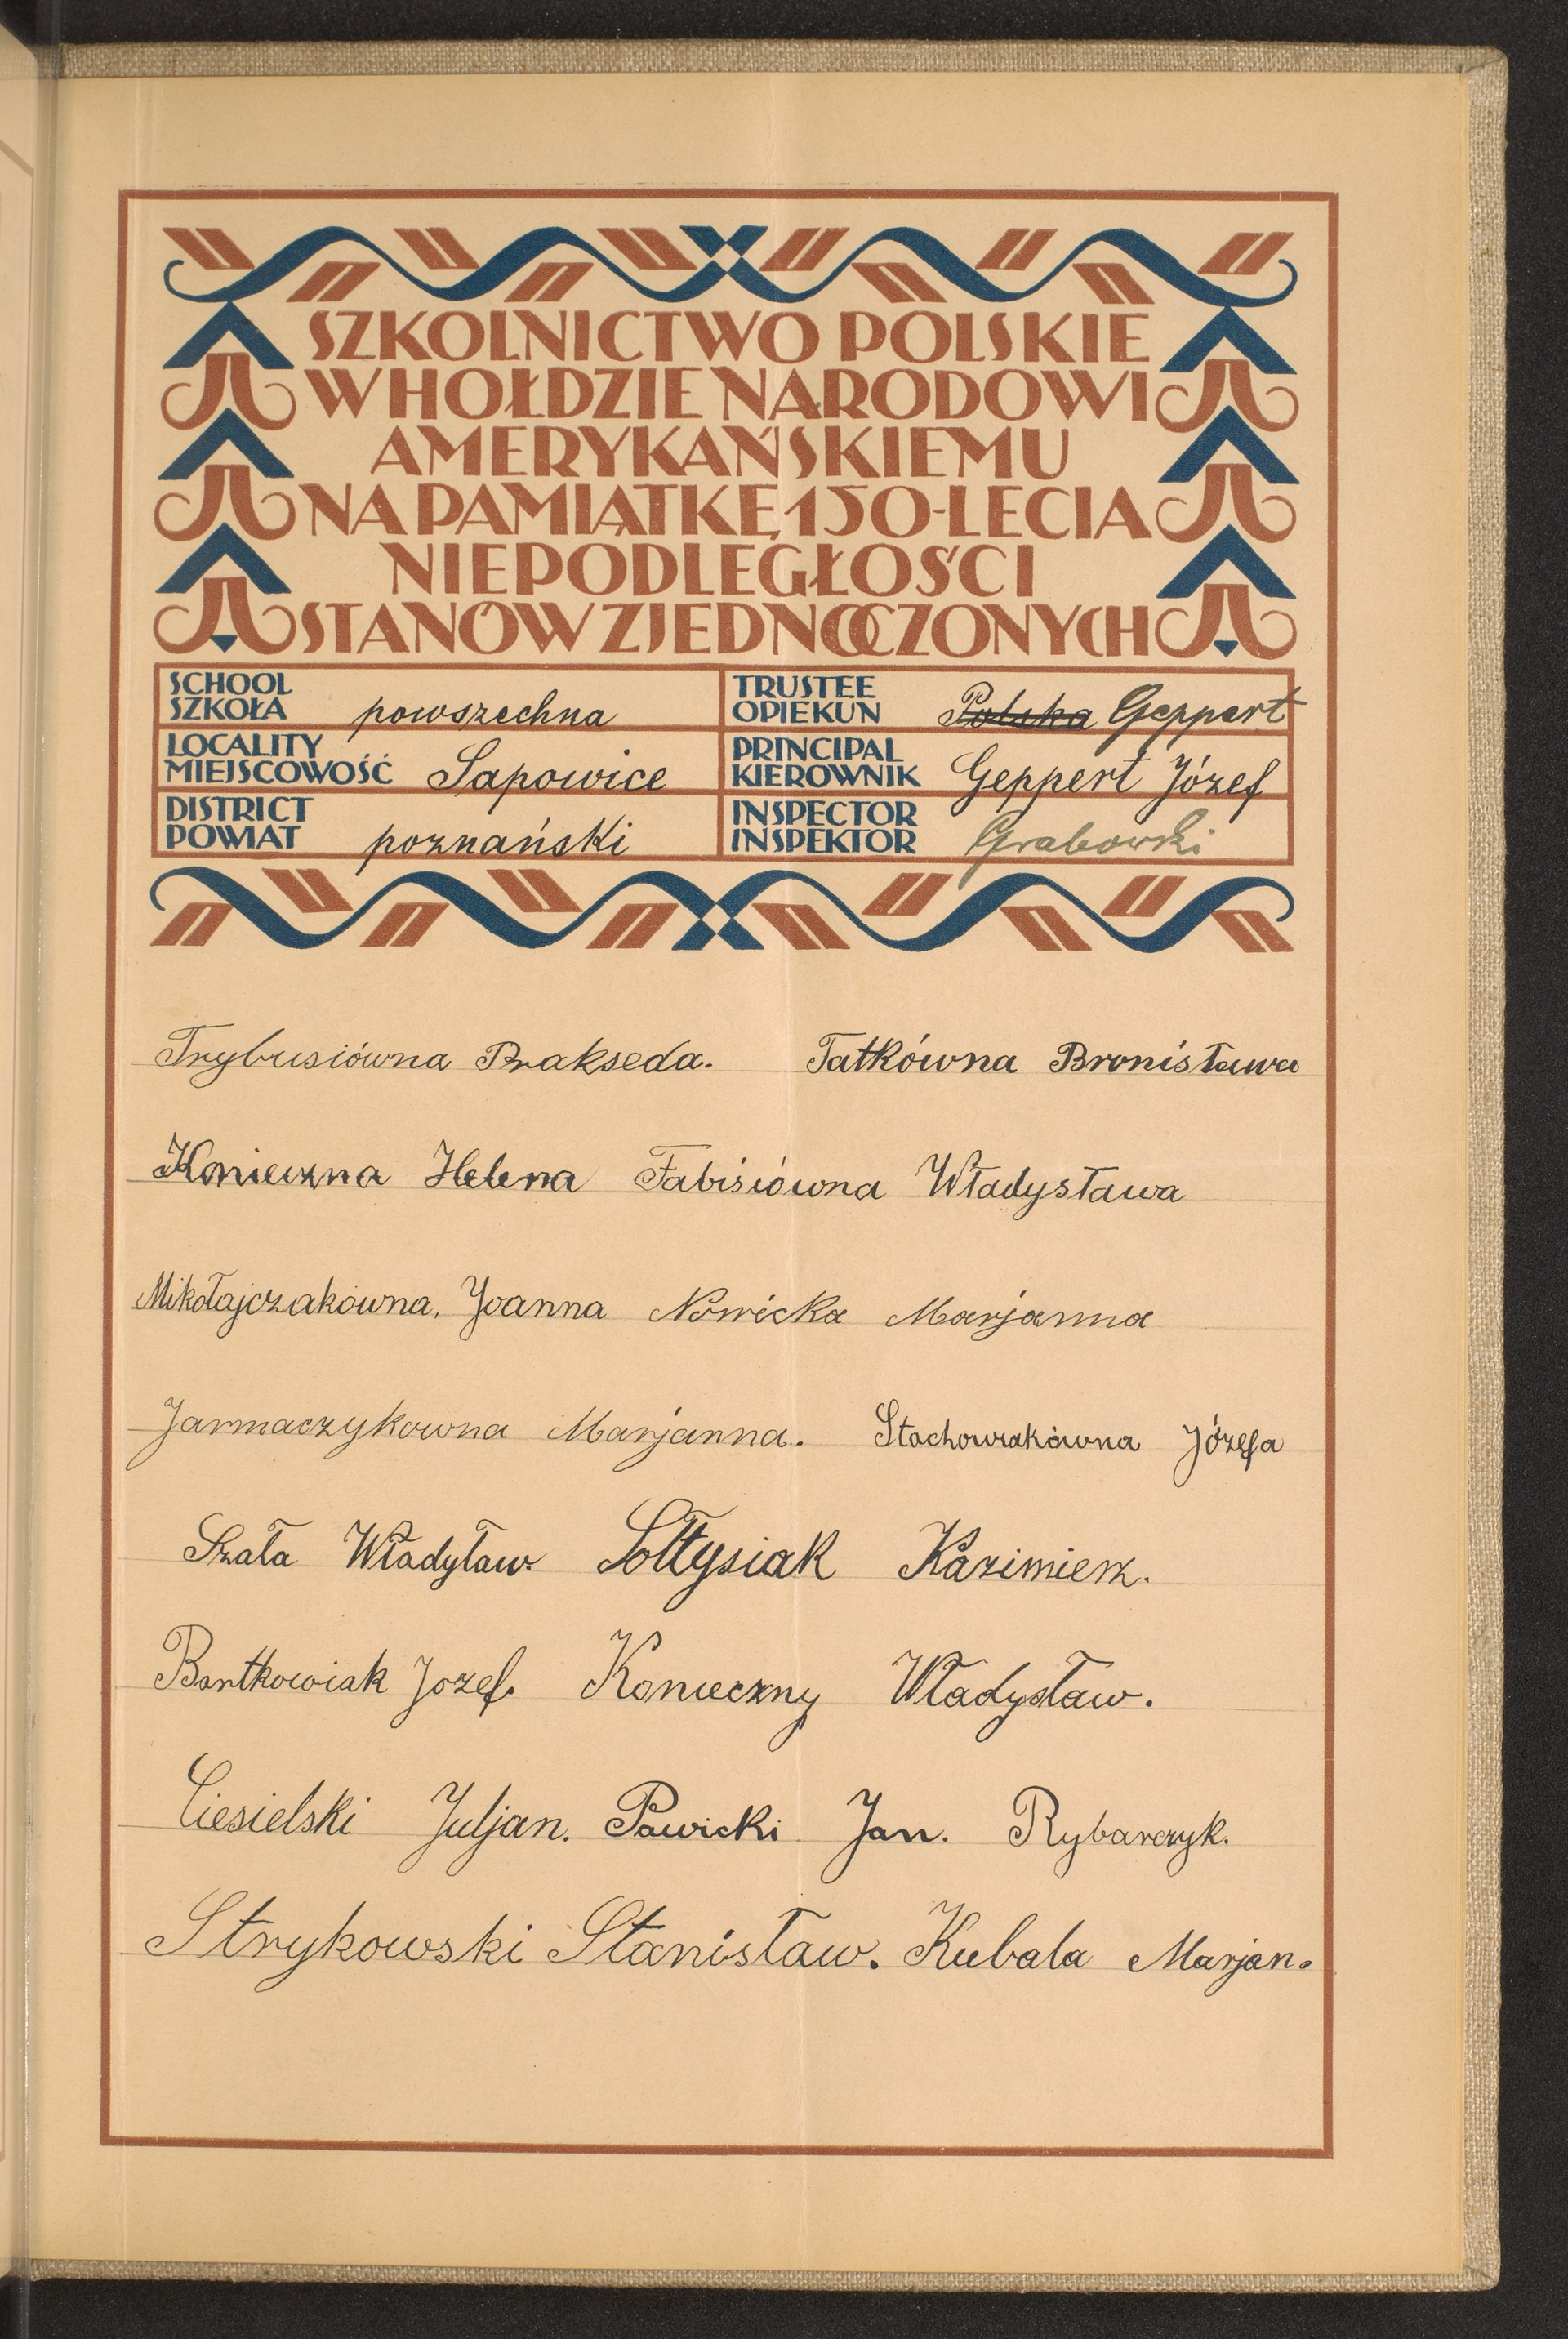 SZKOLNICTWO POLSKIE
W HOŁDZIE NARODOWI
AMERYKAŃSKIEMU
NA PAMIĄTKĘ 150-LECIA
NIEPODLEGŁOŚCI
STANÓW ZJEDNOCZONYCH
SCHOOL
SZKOŁA powszechna
TRUSTEE
OPIEKUN Polska Geppert
LOCALITY
MIEJSCOWOŚĆ Sapowice
PRINCIPAL
KIEROWNIK Geppert Józef
DISTRICT
POWIAT poznański
INSPECTOR
INSPEKTOR Grabowski
Trybusiówna Prakseda. Tatkówna Bronisława
Konieczna Helena Fabisiówna Władysława
Mikołajczakówna, Joanna Nowicka Marjanna
Jarmaczykowna Marjanna. Stachowiakówna Józefa
Szała Władyław. Sołtysiak Kazimierz.
Bartkowiak Jozef. Konieczny Władysław.
Ciesielski Juljan. Pawicki Jan. Rybarczyk.
Strykowski Stanisław. Kubala Marjan.